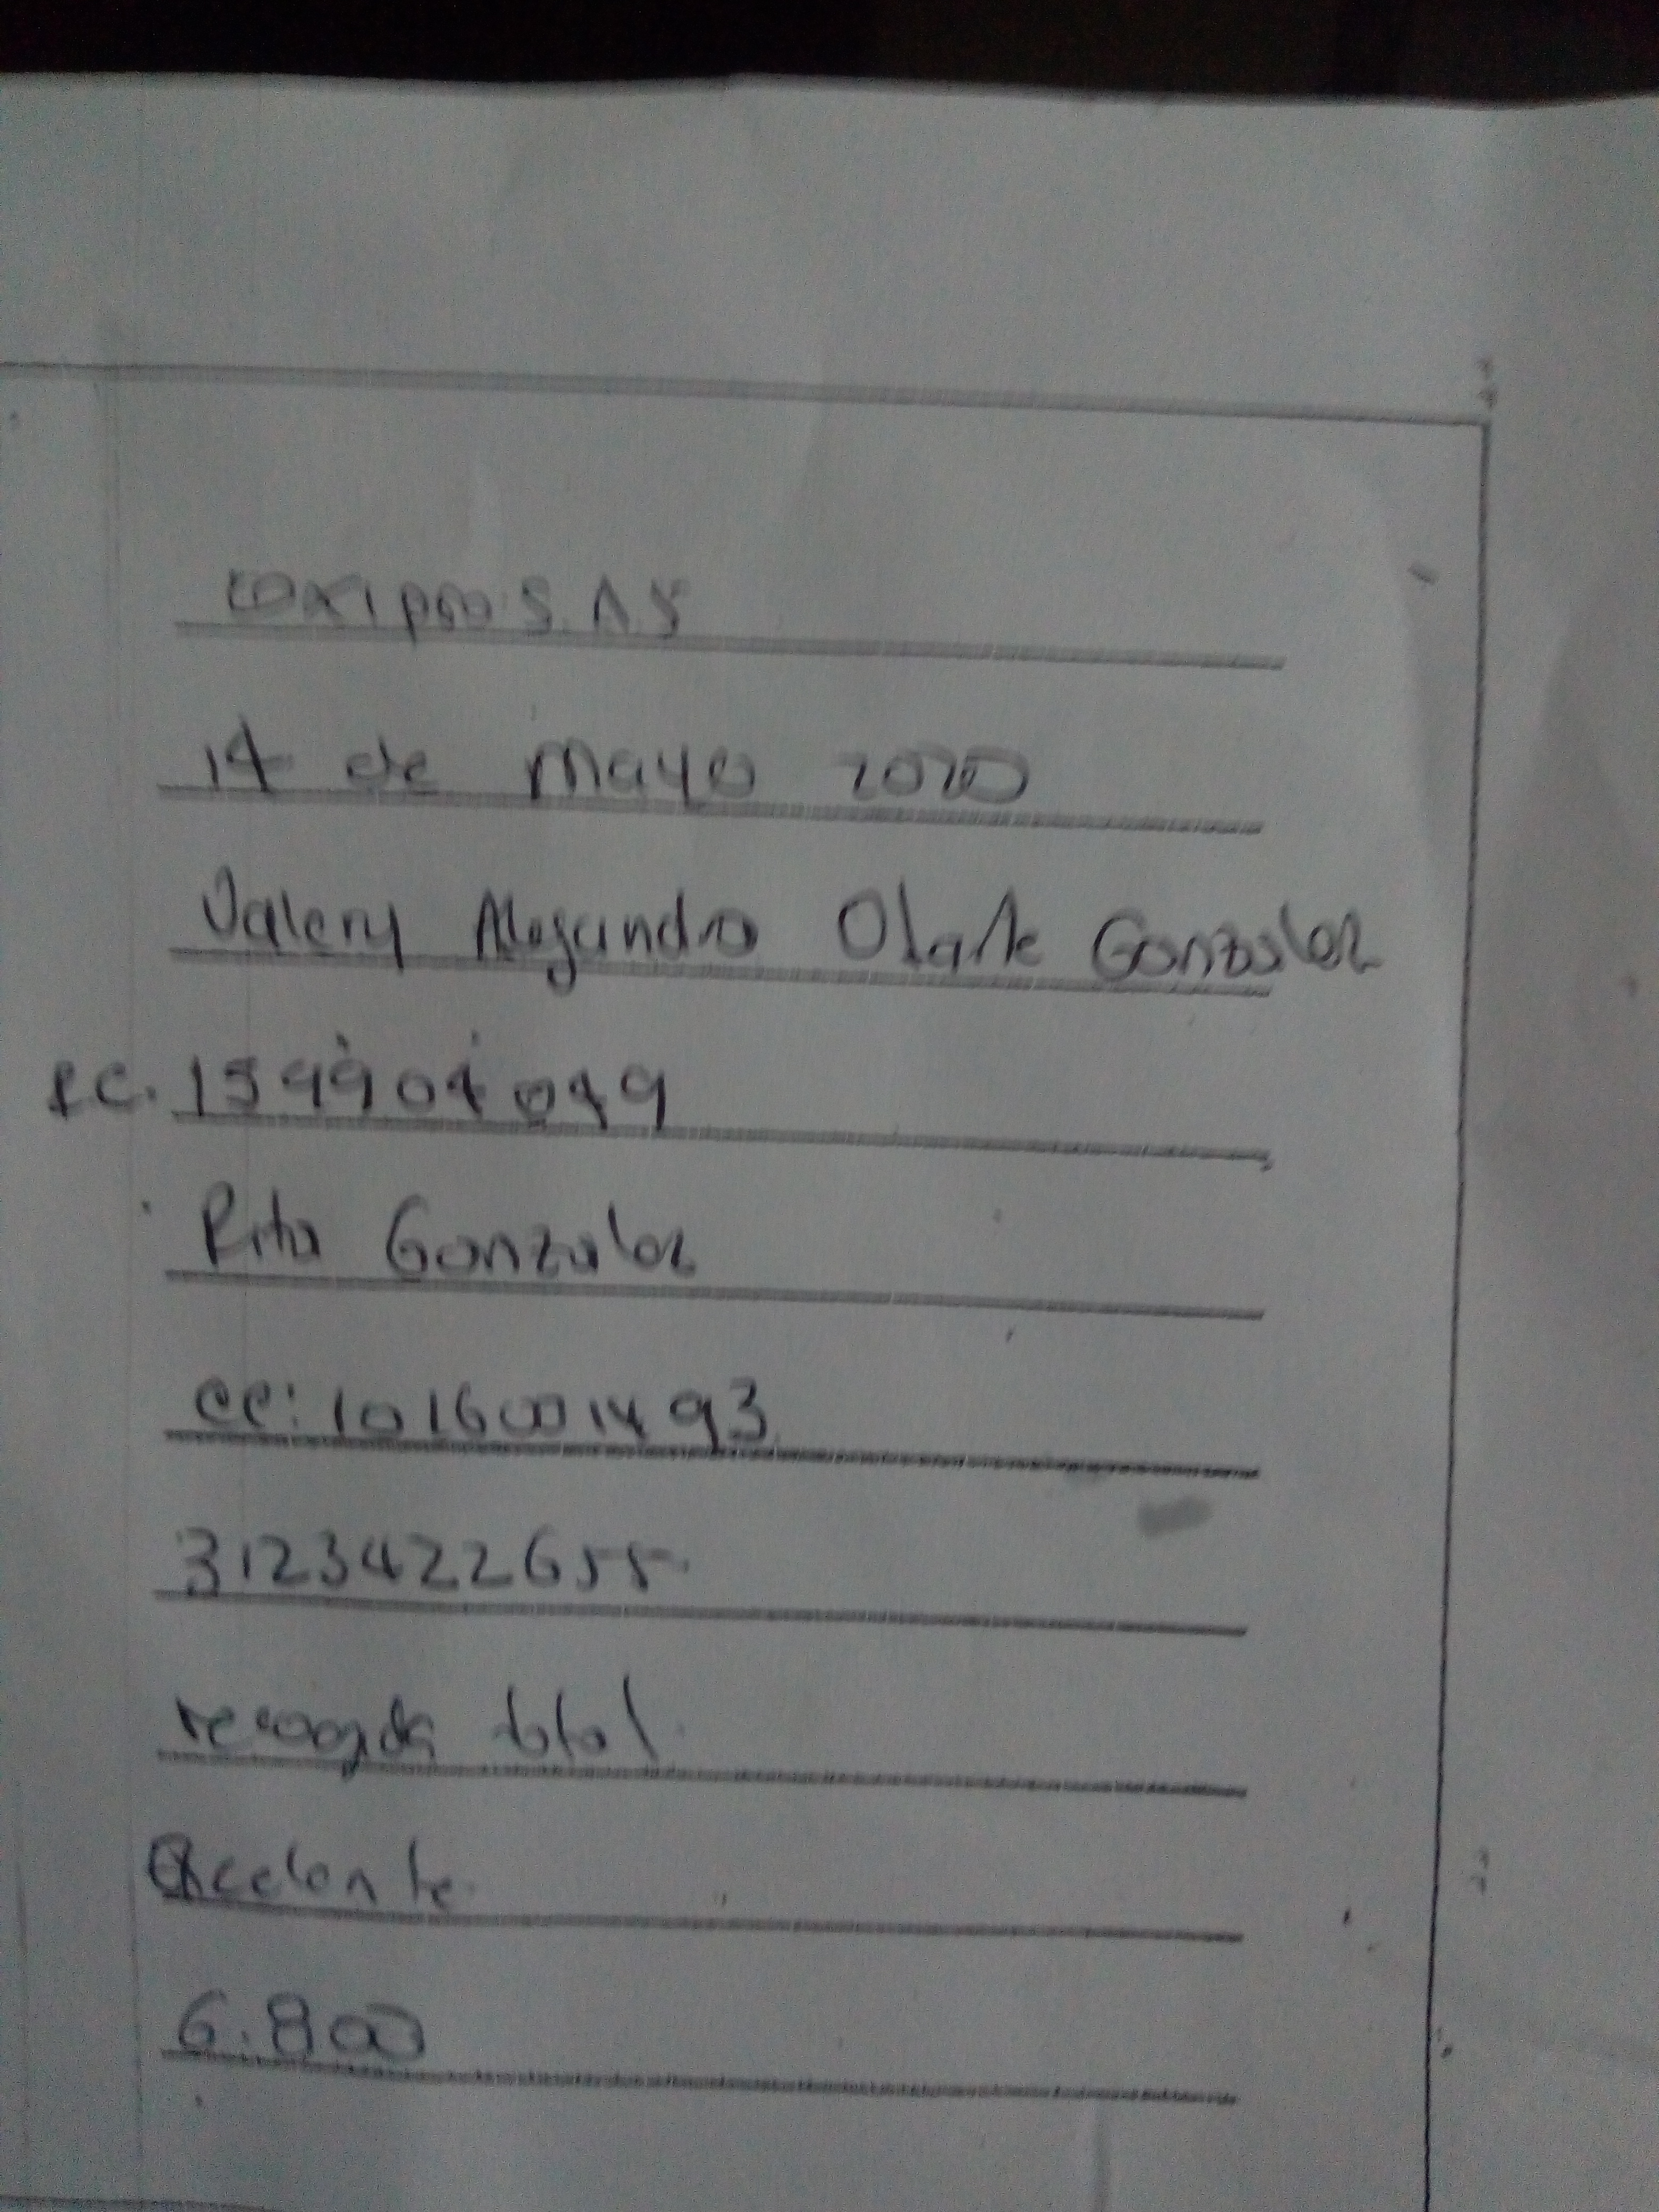 S.A.S
14 de Mayo 2020
Valery Alejandra Olarte Gonzalez
RC.
Rita Gonzalez
CC: 1016001493
3123422655
recogida total
Excelente
6.800